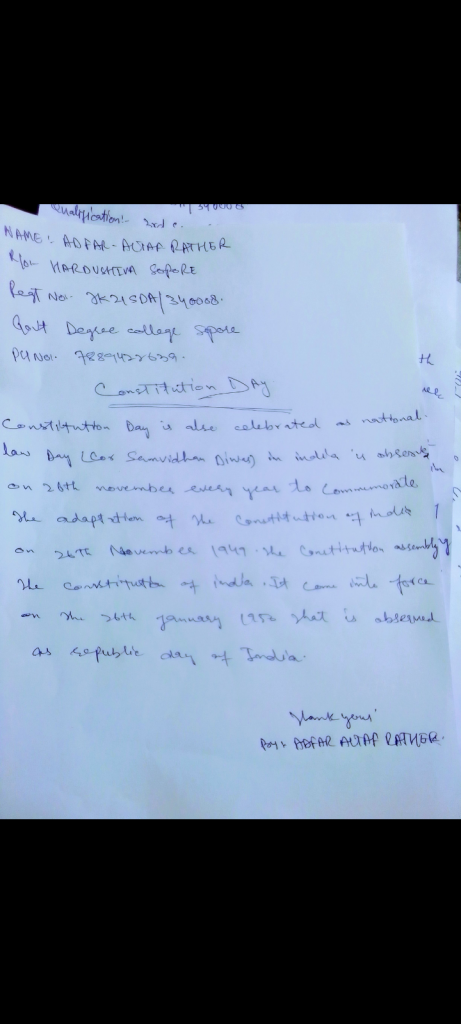 Qualification:- 2nd
NAME:- ADFAR-ALTAF RATHER
R/o:- HARDUCHIVA SOPORE
Regt No:. JK21SDA/340008.
Govt Degree college Sopore
PH No:. 7889422639.
th
Constitution Day
Constitution Day is also celebrated as national
law Day (or Samvidhan Diwas) in india is observe
on 26th november every year to Commemorate
the adaptation of the Constitution of India
on 26th November 1949. the Constitution assembly
the constitution of india. It came into force
on the 26th january 1950 that is observed
as republic day of India.
Thank you
By:- ADFAR ALTAF RATHER.